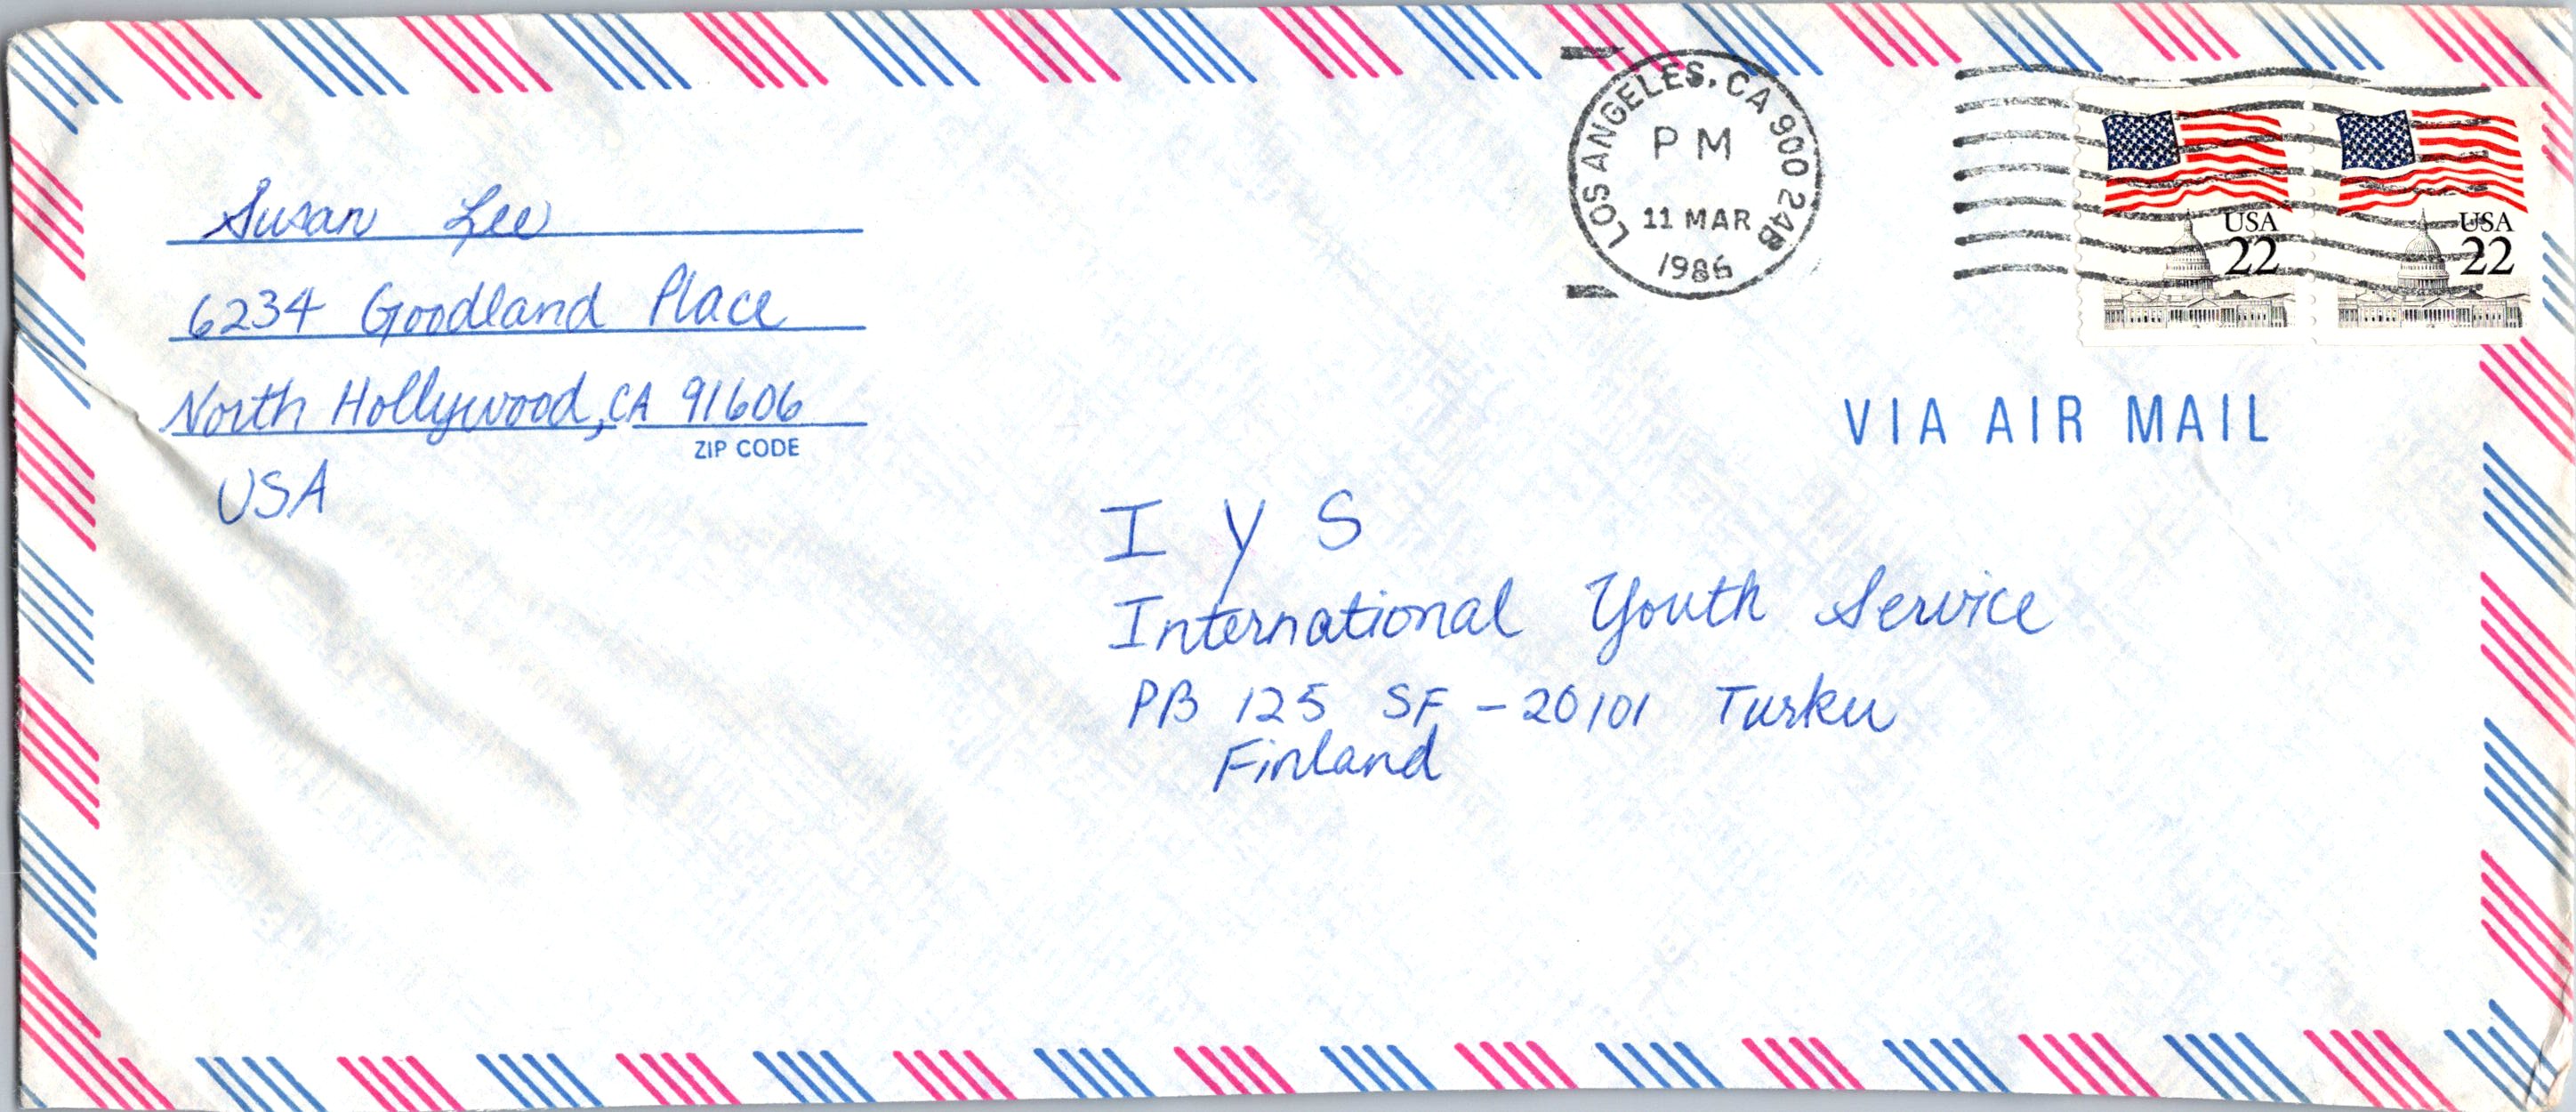 Susan Lee
6234 Goodland Place
North Hollywood, CA 91606
ZIP CODE
USA
LOS ANGELES, CA 900 24B
PM
11 MAR
1986
USA
22
USA
22
VIA AIR MAIL
I Y S
International Youth Service
PB 125 SF - 20101 Turku
Finland